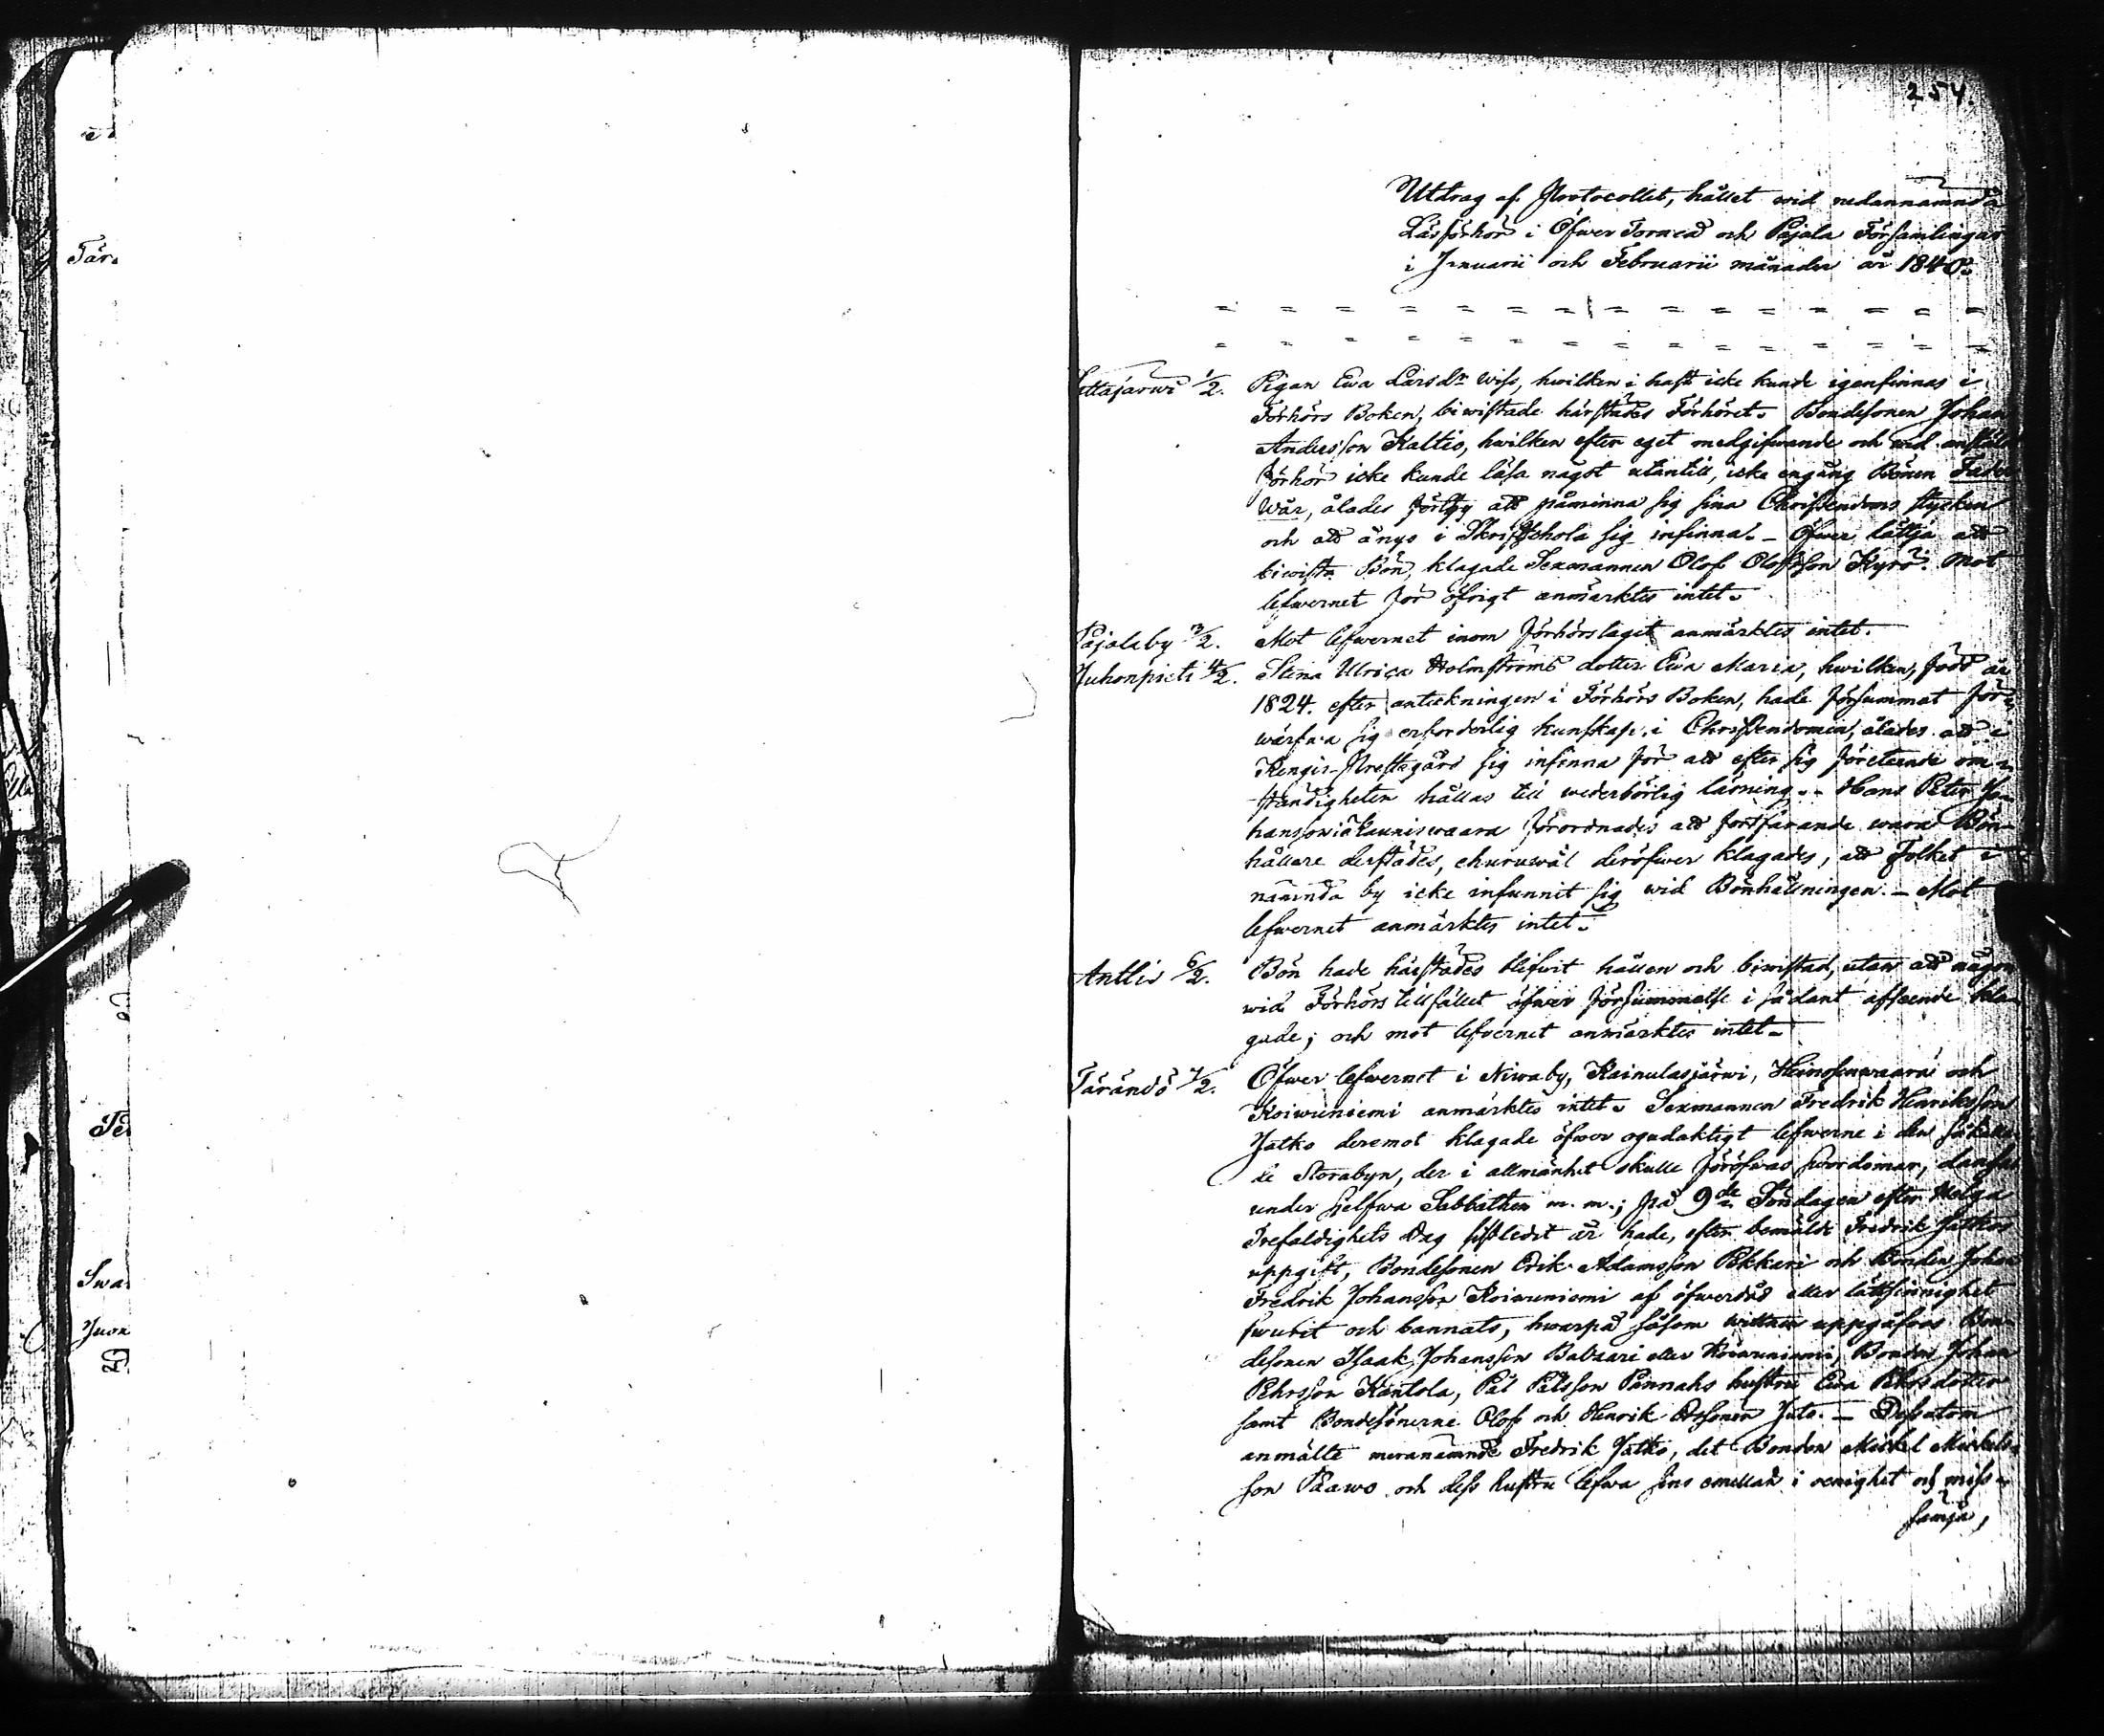 Tär
Swa
Juon
254.
Utdrag af Protocollet, hållet wid nedannämnda
Läsförhör i Öfwer Torneå och Pajala Församlingar
i Januarii och Februarii månader år 1840.
= = = = = = = = = = = = = =
= = = = = = = = = = = = = =
ttajärwi 1/2. Pigan Ewa Larsdr Wiss, hwilken i hast icke kunde igenfinnas i
Förhörs Boken, biwistade härstädes Förhöret. Bondesonen Johan
Andersson Kaltio, hwilken efter eget medgifwande och wid anstäldt
förhör icke kunde läsa något utantill, icke engång Bönen Fader
Wår, ålades förty att påminna sig sina Christendoms stycken
och att å nyo i Skriftschola sig infinna. - Öfwer lättja att
biwista Bön, klagade Sexmannen Olof Olofsson Kyrö. Mot
lefwernet för öfrigt anmärktes intet.
Pajalaby 3/2. Mot lefwernet inom förhörslaget anmärktes intet.
Juhonpieti 4/2. Stina Ulrica Holmströms dotter Ewa Maria, hwilken, född år
1824. efter anteckningen i Förhörs Boken, hade försummat för-
wärfwa sig erforderlig kunskap i Christendomen, ålades att i
Kengis Prestegård sig infinna för att efter sig företeende om-
ständigheter hållas till wederbörlig läsning. - Hans Peter Jo-
hansson i Kauniswaara förordnades att fortfarande wara Bön-
hållare derstädes, churuwäl deröfwer klagades, att Folket i
nämnda by icke infunnit sig wid Bönhållningen. - Mot
lefwernet anmärktes intet.
Anttis 6/2. Bön hade härstädes blifwit hållen och biwistad, utan att någon
wid Förhörs tillfället öfwer försummelse i sådant afseende kla-
gade; och mot lefwernet anmärktes intet.
Tärändö 7/2. Öfwer lefwernet i Niwaby, Kainulasjärwi, Heinosenwaara och
Koiwuniemi anmärktes intet. Sexmannen Fredrik Henriksson
Jatko deremot klagade öfwer ogudaktigt lefwerne i den så kalla-
de Storabyn, der i allmänhet skulle föröfwas swordomar, dansas
under sjelfwa Sabbathen m. m.; på 9de Söndagen efter Helga
Trefaldighets Dag sistledit år hade, efter bemälde Fredrik Jatkos
uppgift, Bondesonen Erik Adamsson Pekkari och Bonden Johan
Fredrik Johansson Koiwuniemi af öfwerdåd eller lättsinnighet
swurit och bannats, hwarpå såsom wittnen uppgåfwos Bon-
desonen Isaak Johansson eller Koiwuniemi, Bonden Johan
Pehrsson Kantola, Pål Pålsson Pannahs hustru Ewa Pehrsdotter
samt Bondesönerne Olof och Henrik Jato. - Dessutom
anmälte meranämnde Fredrik Jatko, det Bonden Mickel Mickels-
son Paawo och dess hustru lefwa sins emellan i oenighet och miss-
sämja,